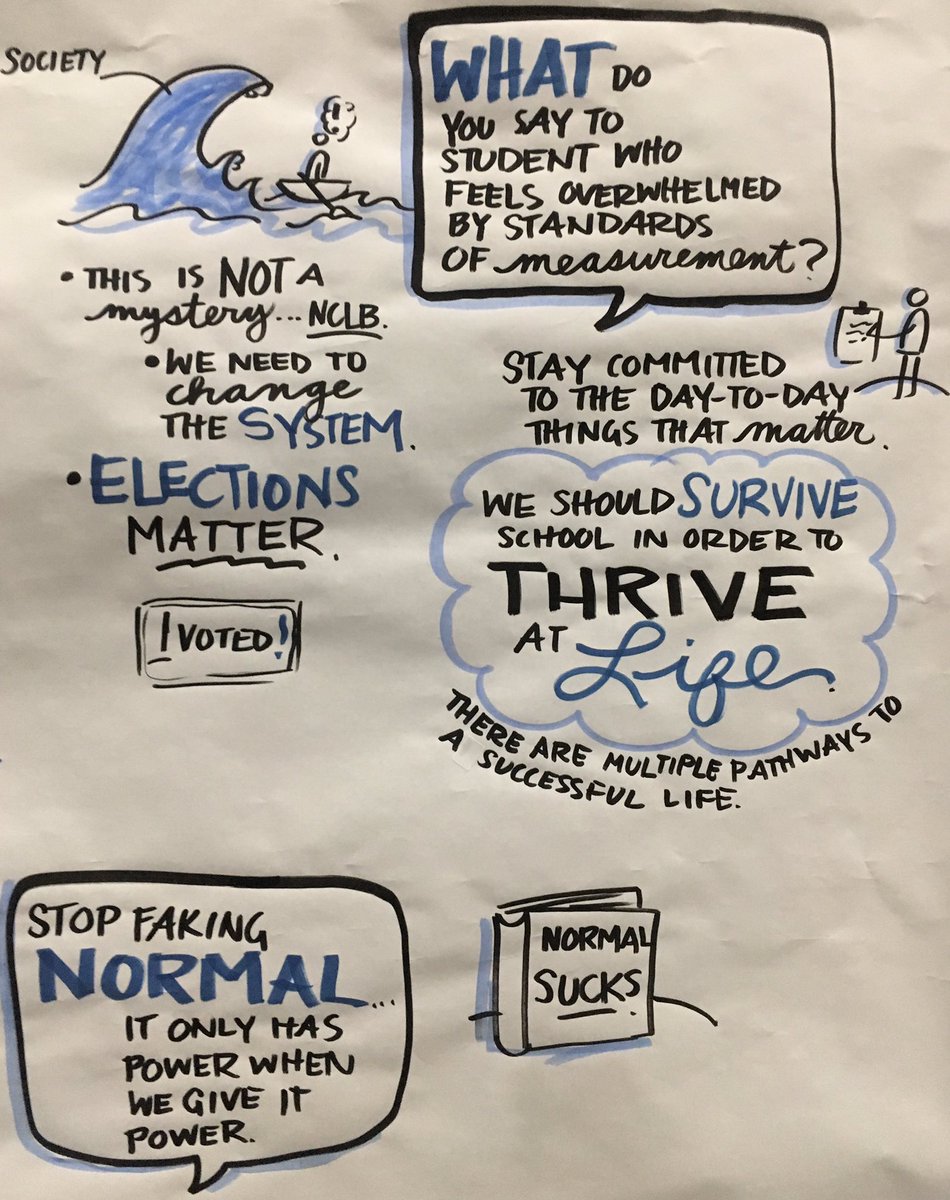 SOCIETY
WHAT DO
YOU SAY TO
STUDENT WHO
FEELS OVERWHELMED
BY STANDARDS
OF measurement?
!
• THIS IS NOT A
mystery... NCLB.
• WE NEED TO
change
THE SYSTEM.
• ELECTIONS
MATTER.
I VOTED!
STAY COMMITTED
TO THE DAY-TO-DAY
THINGS THAT matter.
WE SHOULD SURVIVE
SCHOOL IN ORDER TO
THRIVE
AT Life.
THERE ARE MULTIPLE PATHWAYS TO
A SUCCESSFUL LIFE.
STOP FAKING
NORMAL...
IT ONLY HAS
POWER WHEN
WE GIVE IT
POWER.
NORMAL
SUCKS.